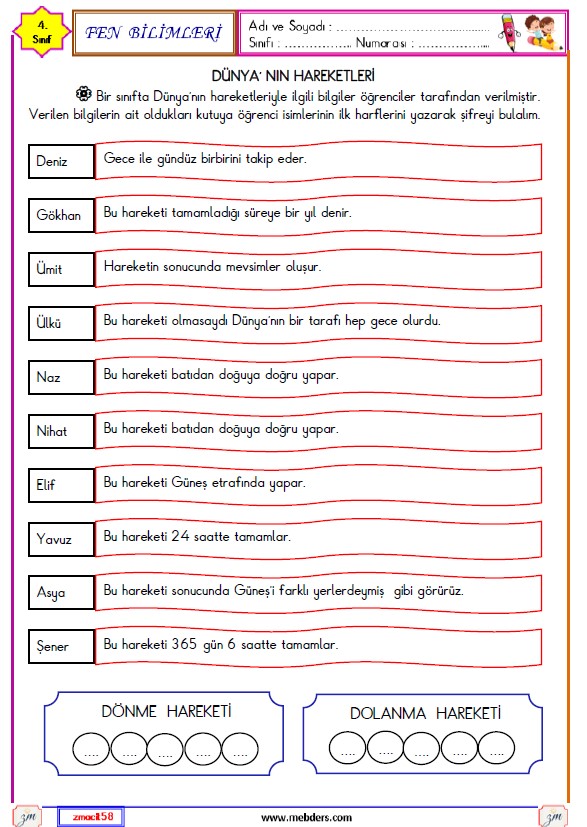 4.
Sınıf
FEN BİLİMLERİ
Adı ve Soyadı : ……………………………………
Sınıfı : …………….. Numarası : ………………...
DÜNYA' NIN HAREKETLERİ
Bir sınıfta Dünya'nın hareketleriyle ilgili bilgiler öğrenciler tarafından verilmiştir.
Verilen bilgilerin ait oldukları kutuya öğrenci isimlerinin ilk harflerini yazarak şifreyi bulalım.
Deniz Gece ile gündüz birbirini takip eder.
Gökhan Bu hareketi tamamladığı süreye bir yıl denir.
Ümit Hareketin sonucunda mevsimler oluşur.
Ülkü Bu hareketi olmasaydı Dünya'nın bir tarafı hep gece olurdu.
Naz Bu hareketi batıdan doğuya doğru yapar.
Nihat Bu hareketi batıdan doğuya doğru yapar.
Elif Bu hareketi Güneş etrafında yapar.
Yavuz Bu hareketi 24 saatte tamamlar.
Asya Bu hareketi sonucunda Güneş'i farklı yerlerdeymiş gibi görürüz.
Şener Bu hareketi 365 gün 6 saatte tamamlar.
DÖNME HAREKETİ
.... .... .... .... ....
DOLANMA HAREKETİ
.... .... .... .... ....
zm zmacit58 www.mebders.com zm